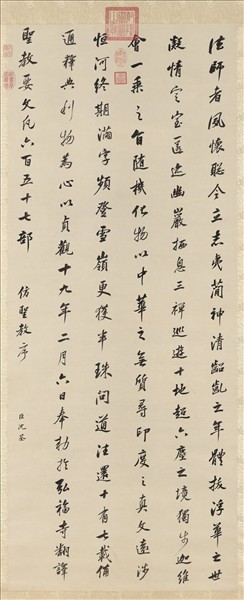 法師者夙懷聰令立志夷簡神清齠齔之年體拔浮華之世
凝情定室匿迹幽巖栖息三禪巡遊十地超六塵之境獨步伽維
會一乘之旨隨機化物以中華之無質尋印度之真文遠涉
恒河終期滿字頻登雪嶺更獲半珠問道往還十有七載備
通釋典利物為心以貞觀十九年二月六日奉勅於弘福寺翻譯
聖教要文凡六百五十七部
仿聖教序
臣沈荃